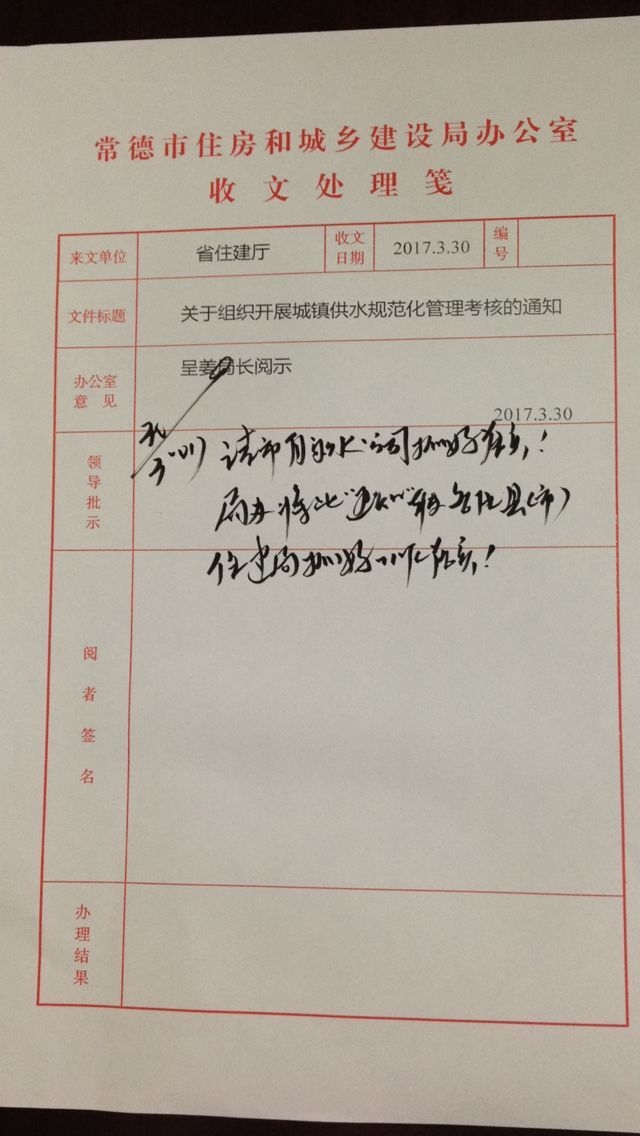 常德市住房和城乡建设局办公室
收文处理笺
来文单位 省住建厅 收文日期 2017.3.30 编号
文件标题 关于组织开展城镇供水规范化管理考核的通知
办公室意见 呈姜局长阅示
2017.3.30
领导批示 请市自来水公司抓好落实!
局办将此通知转各区县(市)
住建局抓好工作落实!
阅者签名
办理结果